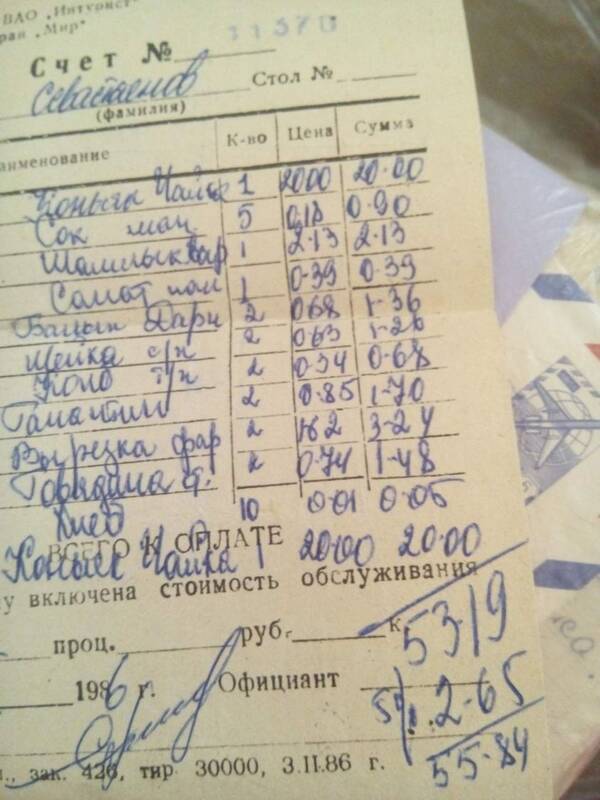 ВАО „Интурист"
ран „Мир"
Счет № 11370
Севастьянов Стол №
(фамилия)
аименование К-во Цена Сумма
Коньяк Чайка 1 2000 20-00
Сок ман 5 0,18 0-90
Шашлык кар 1 2-13 2-13
Салат 1 0-39 0-39
2 068 1-36
Шейка с/к 2 063 1-26
2 0-34 0-68
2 0-85 1-70
Вырезка фар 2 162 3-24
Говядина 2 0-74 1-48
Хлеб 10 0-01 0-05
ВСЕГО К ОПЛАТЕ
Коньяк Чайка 1 20-00 20-00
у включена стоимость обслуживания
проц. руб. к. 53-19
1986 г. Официант 5% 2-65
55-84
зак. 426, тир 30000, 3.11.86 г.